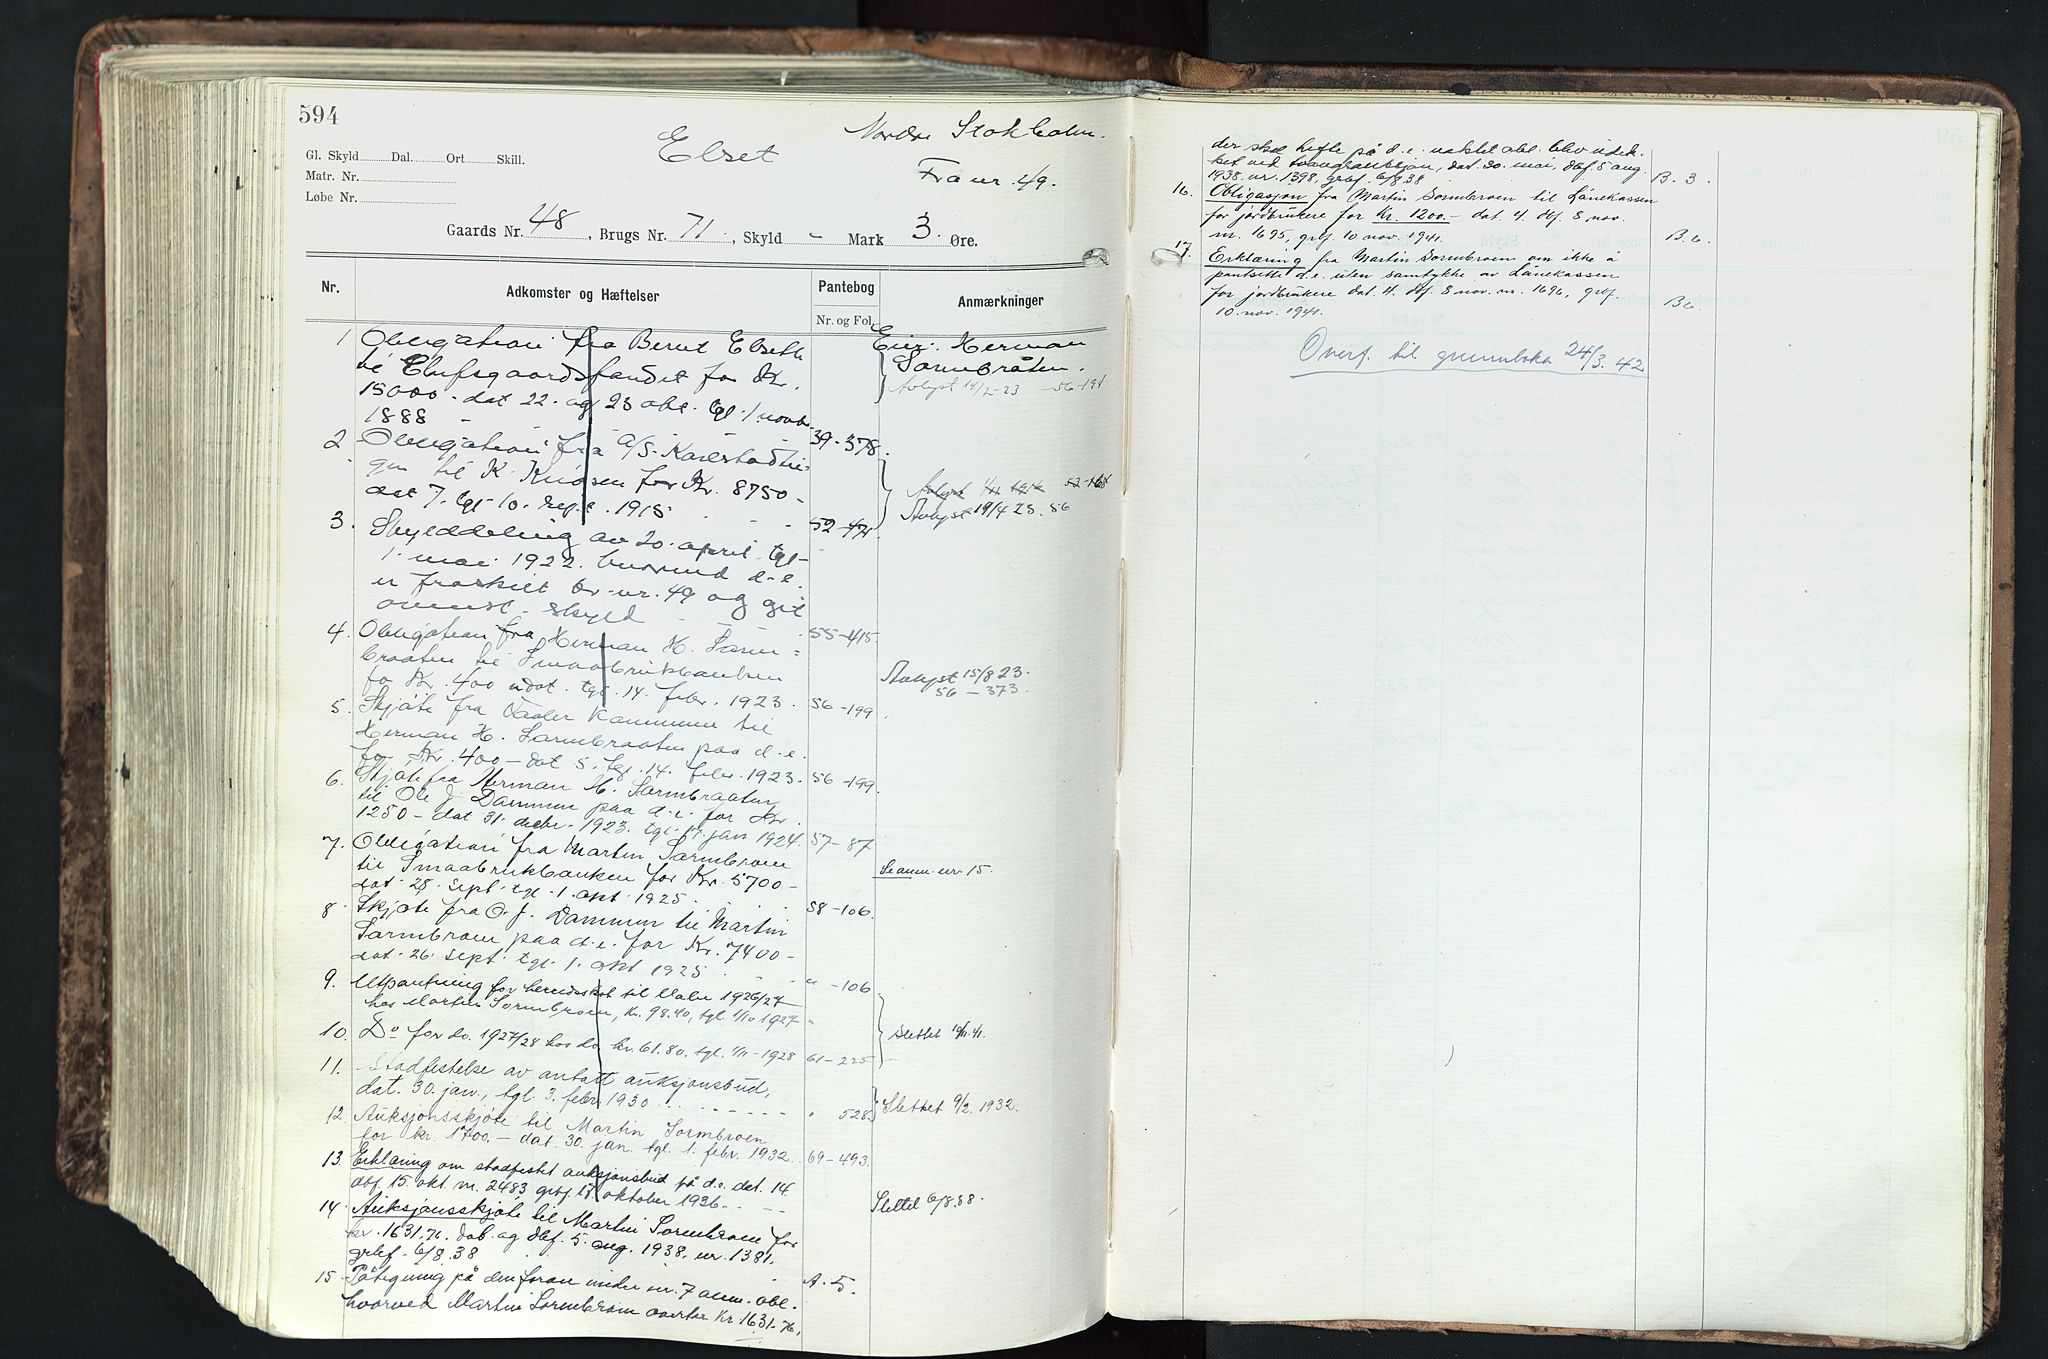 594
Nordre Stokholm.
Elset
Fra nr. 49.
Gl. Skyld Dal. Ort Skill.
Matr. Nr.
Løbe Nr.
Gaards Nr. 48, Brugs Nr. 71., Skyld - Mark 3. Øre.
Nr. Adkomster og Hæftelser Pantebog Anmærkninger
Nr. og Fol.
1 Obligation fra Bernt Elseth Eier: Herman
til Oplysgaardsfondet for Kr. Sormbråten.
15000 - dat 22. og 23 okt. tgl. 1 novbr. Avlyst 14/2-23 -56-191
1888 - 39-378.
2 Obligation fra A/S. Karlstadtei-
gen til K. Knosen for Kr. 8750 - Avlyst
dat 7. tgl. 10. sept. 1915 52-471 Avlyst 19/4 23. 56
3. Skylddeling av 20. april tgl.
1. mai 1922. hvorved d.e.
er fraskilt br. nr. 49 og git
ovennt. skyld 55-415.
4. Obligation fra Herman H. Sørm-
braaten til Smaabrukbanken Avlyst 15/8 23.
for Kr. 400 udat. tgl. 14. febr. 1923. 56-199 56-373.
5. Skjøte fra Vaaler Kommune til
Herman H. Sørmbraaten paa d.e.
for Kr. 400 - dat 5. tgl. 14. febr. 1923. 56-199
6. Skjøte fra Herman H. Sørmbraaten
til Ole J. Dammen paa d.e. for Kr.
1250 - dat 31. decbr. 1923. tgl. 17. jan 1924. 57-87
7. Obligation fra Martin Sørmbroen
til Smaabrukbanken for Kr. 5700 - Se anm. nr. 15.
dat. 28. sept. tgl. 1. okt. 1925. 58-106.
8. Skjøte fra O. J. Dammen til Martin
Sørmbroen paa d.e. for Kr. 7400 -
dat. 26. sept. tgl. 1. okt 1925 " -106
9. Utpantning for herredsskat til Våler 1926/27
hos Martin Sørmbroen, kr. 98.40, tgl. 1/10 1927 "
10. Do for do. 1927/28 hos do kr. 61.80. tgl. 1/11-1928 61-225 Slettet 10/11.41.
11. Stadfestelse av antatt auksjonsbud,
dat. 30. jan., tgl. 3. febr. 1930 " 528 Slettet 9/2. 1932.
12. Auksjonsskjøte til Martin Sormbroen
for kr. 1700. - dat. 30. jan. tgl. 1. febr. 1932. 69-493.
13. Erklæring om stadfestet auksjonsbud på d.e. dat. 14.
dbf. 15. okt. nr. 2483, grbf. 17. oktober 1936. Slettet 6/8.38.
14. Auksjonsskjøte til Martin Sormbroen for
kr. 1631.76. dat. og dbf. 5. aug. 1938. nr. 1381.
grbf. 6/8.38 A. 5.
15 Påtegning på den foran under nr. 7 anm. obl.
hvorved Martin Sormbroen overtar Kr. 1631.76,
der skal hefte på d.e. nettet obl. blev videk-
ket ved tvangsauksjon, dat. 30. mai, dbf. 5 aug.
1938. nr. 1398, grbf. 6/8.38 B. 3.
16. Obligasjon fra Martin Sormbroen til Lånekassen
for jordbrukere for Kr. 1200.- dat. 4. dbf. 8 nov.
nr. 1695, grbf. 10 nov. 1941. B. 6.
17. Erklæring fra Martin Sormbroen om ikke å
pantsette d.e. uten samtykke av Lånekassen
for jordbrukere dat. 4. dbf. 8 nov. nr. 1696, grbf.
10. nov. 1941. B 6
Overf. til grunnboka 24/3. 42